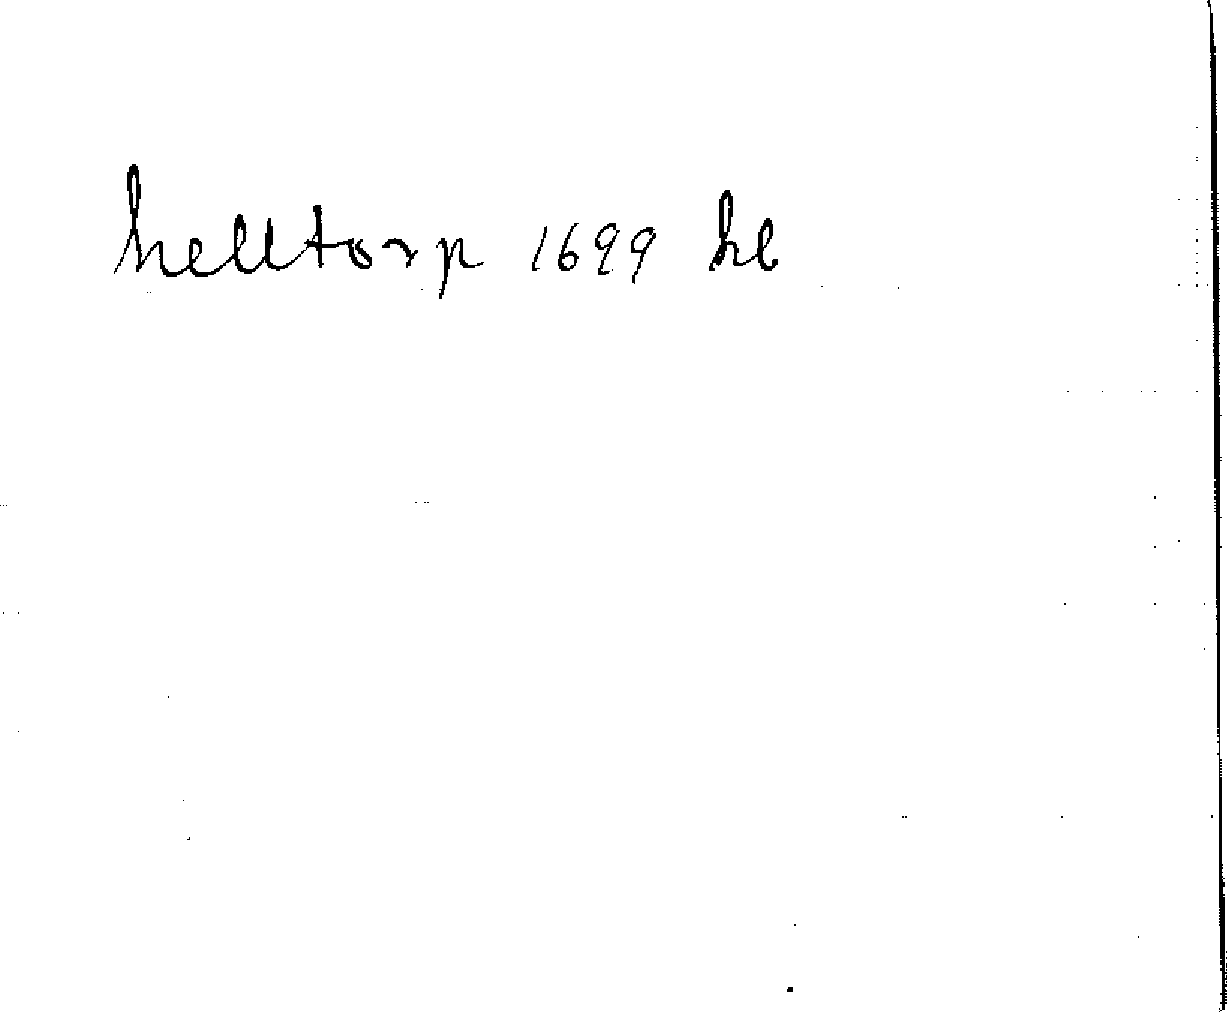 helltorp 1699 hl